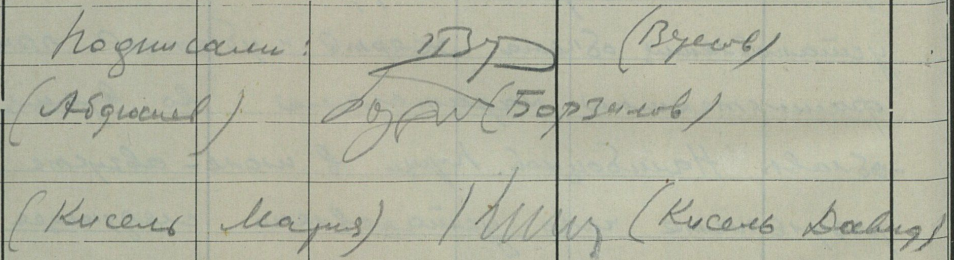 Подписали: (Вусов)
(Абдюшев) (Борзилов)
(Кисель Мария) (Кисель Давид)